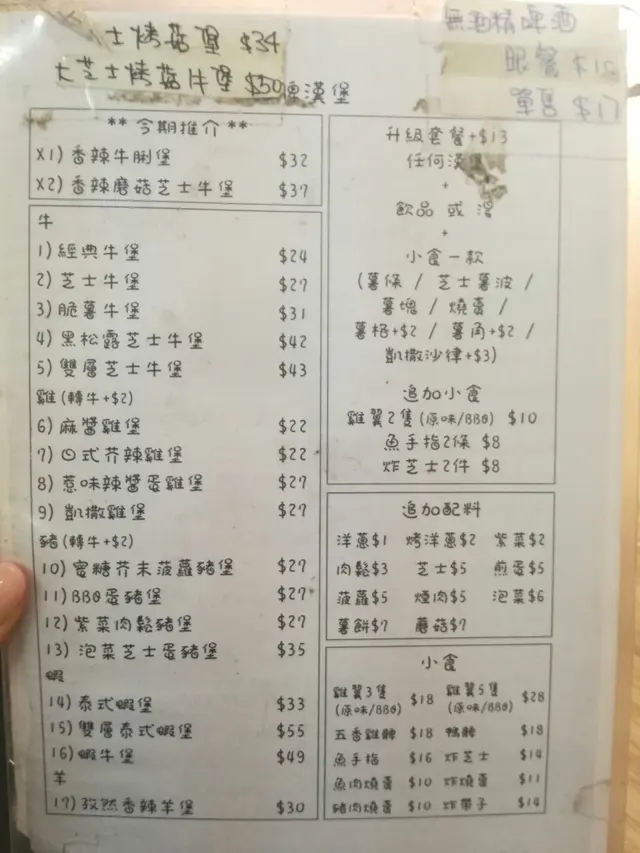 士烤菇堡 $34
大芝士烤菇牛堡 $50
漢堡
無酒精啤酒
跟餐 $15
單售 $17
** 今期推介 **
X1) 香辣牛脷堡 $32
X2) 香辣磨菇芝士牛堡 $37
牛
1) 經典牛堡 $24
2) 芝士牛堡 $27
3) 脆薯牛堡 $31
4) 黑松露芝士牛堡 $42
5) 雙層芝士牛堡 $43
雞 (轉牛+$2)
6) 麻醬雞堡 $22
7) 日式芥辣雞堡 $22
8) 惹味辣醬蛋雞堡 $27
9) 凱撒雞堡 $27
豬 (轉牛+$2)
10) 蜜糖芥末菠蘿豬堡 $27
11) BBQ蛋豬堡 $27
12) 紫菜肉鬆豬堡 $27
13) 泡菜芝士蛋豬堡 $35
蝦
14) 泰式蝦堡 $33
15) 雙層泰式蝦堡 $55
16) 蝦牛堡 $49
羊
17) 孜然香辣羊堡 $30
升級套餐+$13
任何漢
+
飲品 或 湯
+
小食一款
(薯條 / 芝士薯波 /
薯塊 / 燒賣 /
薯格+$2 / 薯角+$2 /
凱撒沙律+$3)
追加小食
雞翼2隻 (原味/BBQ) $10
魚手指2條 $8
炸芝士2件 $8
追加配料
洋蔥$1 烤洋蔥$2 紫菜$2
肉鬆$3 芝士$5 煎蛋$5
菠蘿$5 煙肉$5 泡菜$6
薯餅$7 蘑菇$7
小食
雞翼3隻 (原味/BBQ) $18 雞翼5隻 (原味/BBQ) $28
五香雞髀 $18 鴨髀 $18
魚手指 $16 炸芝士 $14
魚肉燒賣 $10 炸燒賣 $11
豬肉燒賣 $10 炸帶子 $14